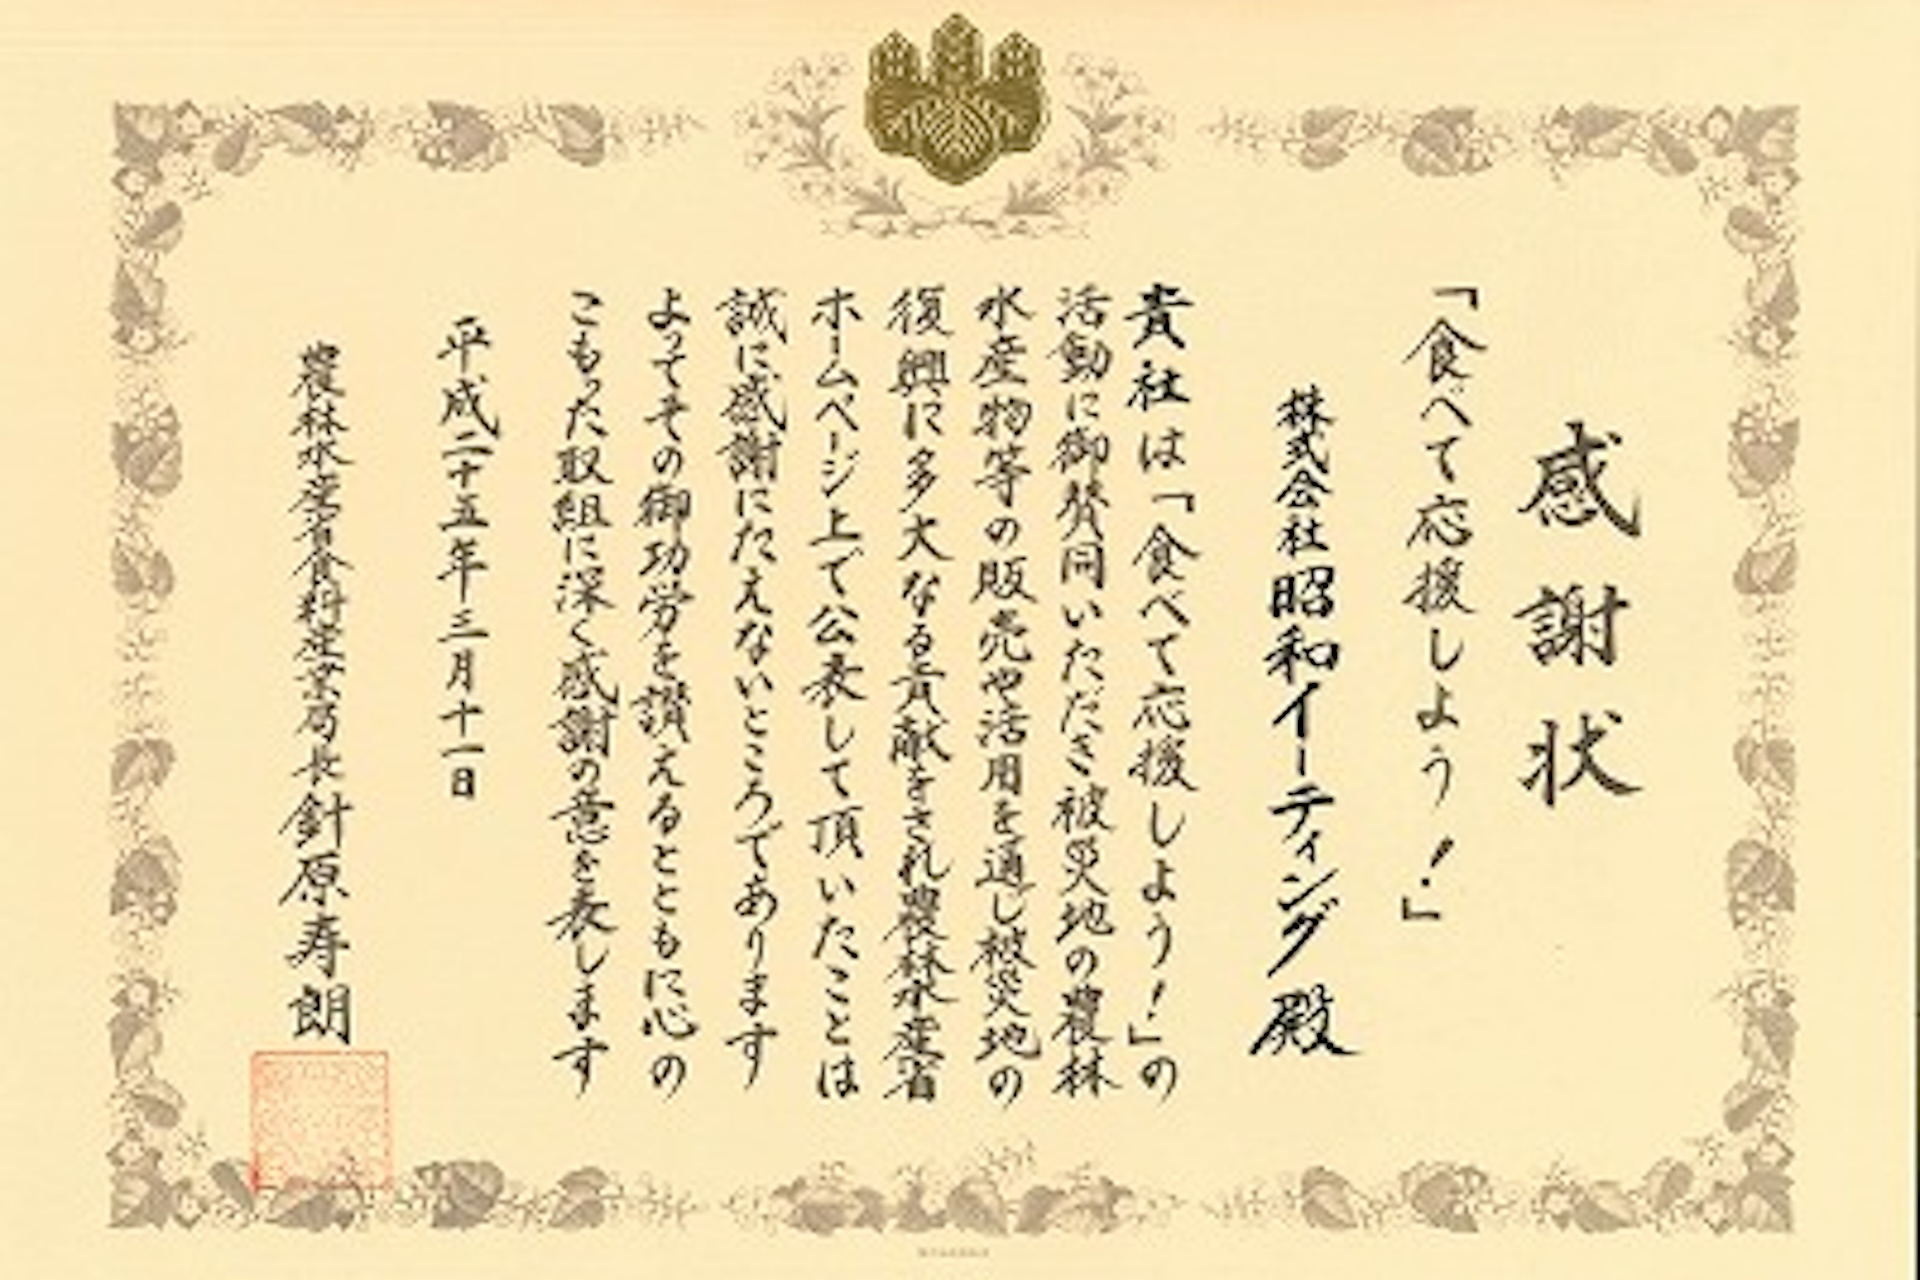 感謝状
「食べて応援しよう！」
株式会社昭和イーティング殿
貴社は「食べて応援しよう！」の
活動に御賛同いただき被災地の農林
水産物等の販売や活用を通じ被災地の
復興に多大なる貢献をされ農林水産省
ホームページ上で公表して頂いたことは
誠に感謝にたえないところであります
よってその御功労を讃えるとともに心の
こもった取組に深く感謝の意を表します
平成二十五年三月十一日
農林水産省食料産業局長針原寿朗